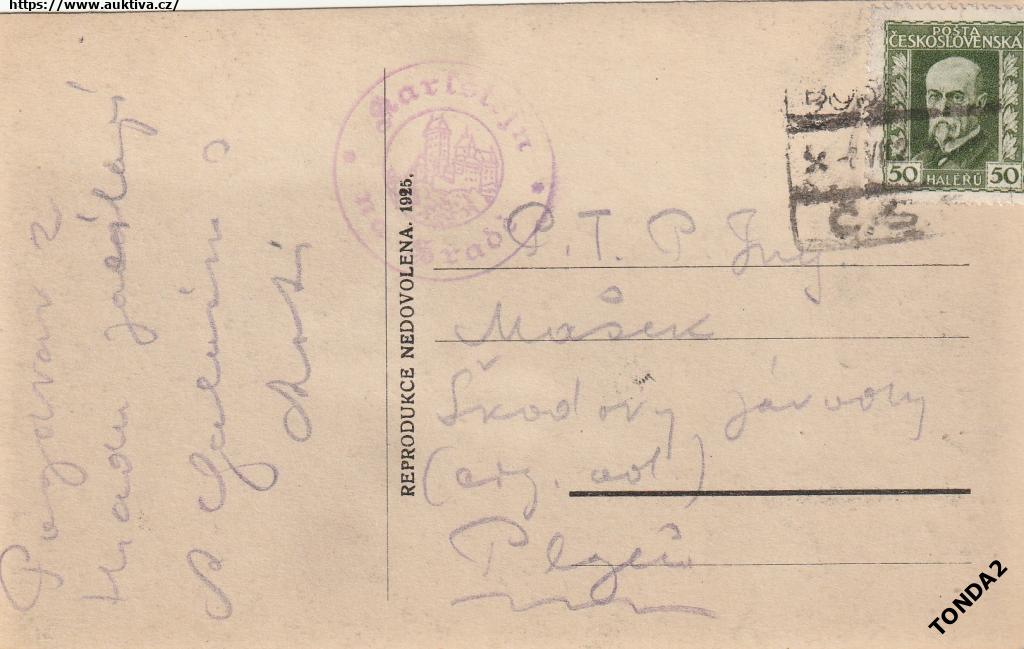 https://www.auktiva.cz/
Pozdrav z
hradu zasílají
A.
Karlštejn
na Hradě
REPRODUKCE NEDOVOLENA. 1925.
POŠTA
ČESKOSLOVENSKÁ
50 HALÉŘŮ 50
Č.S
P. T. P. Ing.
Mašek
Škodovy závody
Plzeň
TONDA2